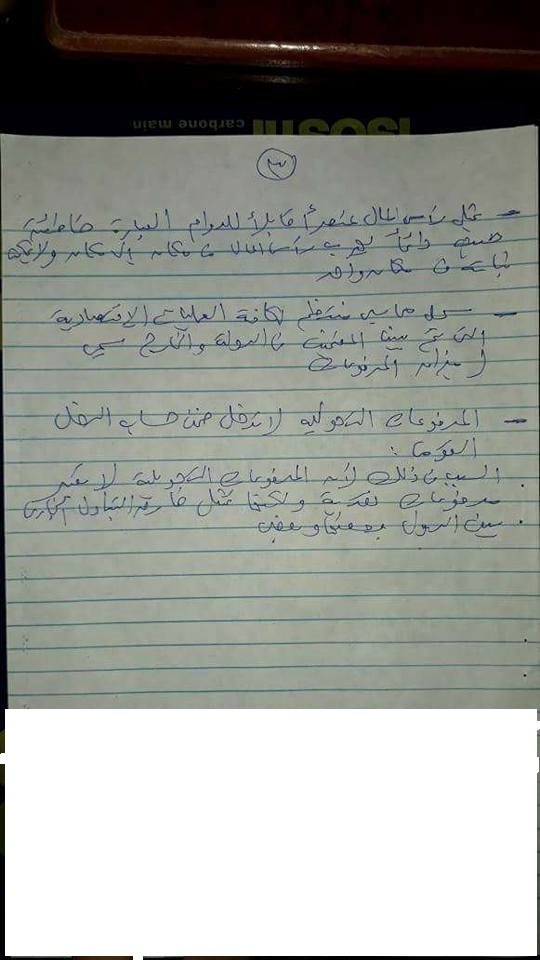 isosn
carbone main
٣
- يمثل رأس المال عنصراً قابلاً للدوام العبارة خاطئة
حيث دائماً يهرب رأس المال من مكان إلى مكان ولا يمكن
ثباته في مكان واحد
- سجل محاسبي منتظم لكافة العمليات الاقتصادية
التي تتم بين المقيمين في الدولة والخارج يسمى
ميزان المدفوعات
- المدفوعات التحويلية لا تدخل ضمن حساب الدخل
القومي:
السبب في ذلك لأن المدفوعات التحويلية لا تعتبر
مدفوعات نقدية ولكنها تمثل فارق التبادل التجاري
بين الدول بعضها وبعض